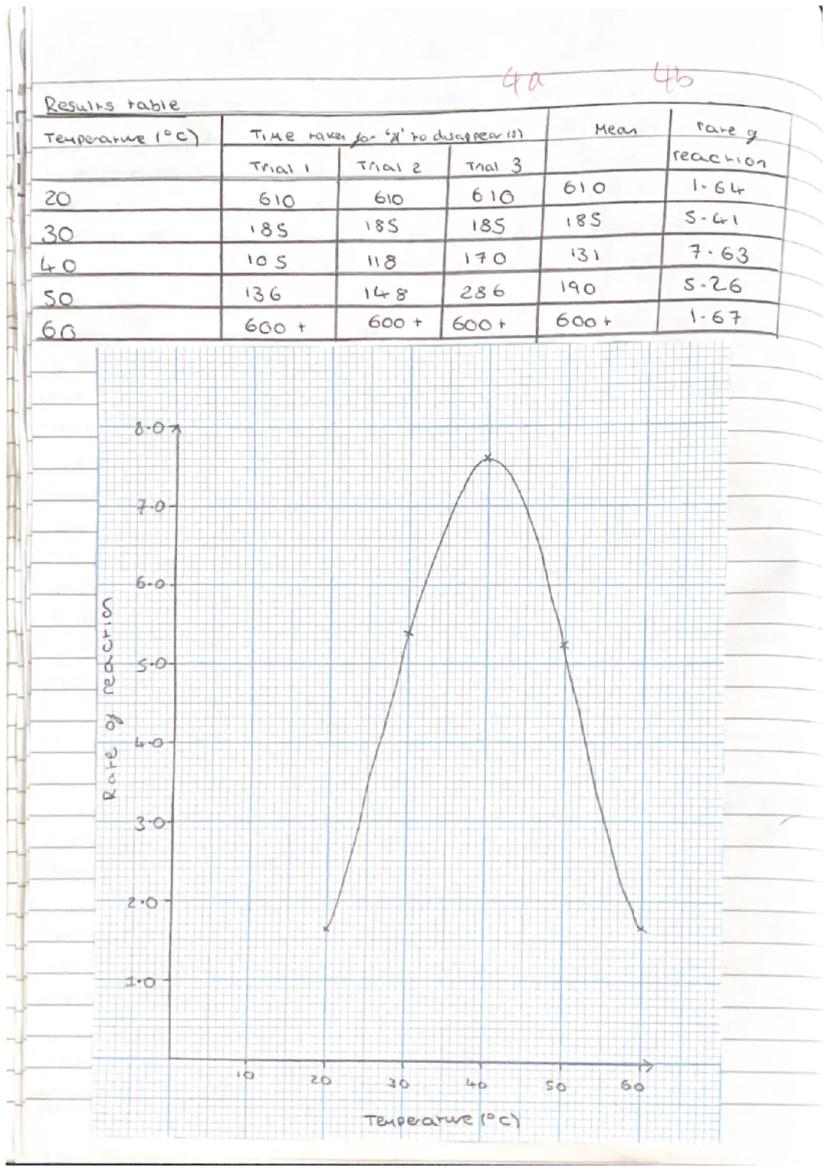 4a 4b
Results table
Temperature (°C) Time taken for 'X' to disappear (s) Mean rate of reaction
Trial 1 Trial 2 Trial 3
20 610 610 610 610 1.64
30 185 185 185 185 5.41
40 105 118 170 131 7.63
50 136 148 286 190 5.26
60 600+ 600+ 600+ 600+ 1.67
8.0
7.0
6.0
5.0
4.0
3.0
2.0
1.0
Rate of reaction
10 20 30 40 50 60
Temperature (°C)